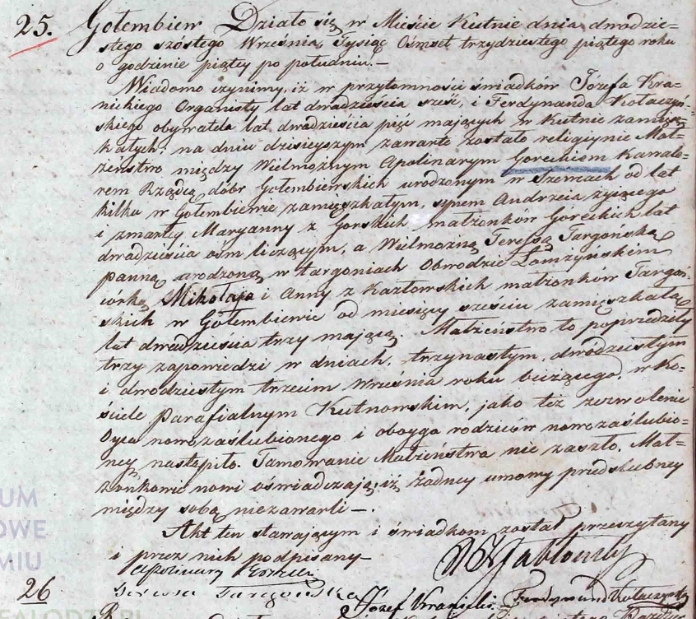 25. Gołembiew Działo się w Mieście Kutnie dnia dwudzie-
stego szóstego Września, Tysiąc Ośmset trzydziestego piątego roku
o godzinie piątey po południu.—
Wiadomo czynimy, iż w przytomności świadków Józefa Kra-
nickiego Organisty lat dwadzieścia sześć, i Ferdynanda Kołaczyń-
skiego obywatela lat dwadzieścia pięć mających w Kutnie zamiesz-
kałych; na dniu dzisieyszym zawarte zostało religiynie Mał-
żeństwo między Wielmożnym Apolinarym Goreckiem Kawale-
rem Rządcą dóbr Gołembiewskich urodzonym w od lat
kilku w Gołembiewie zamięszkałym, synem Andrzeia żyiącego
i zmarłey Maryanny z Gorskich małżonków Goreckich lat
dwadzieścia ośm liczącym, a Wielmożną Teressą Targońską
panną urodzoną w Targoniach Obwodzie Łomżyńskim
corką Mikołaja i Anny z Kozłowskich małżonków Targoń-
skich w Gołembiewie od miesięcy sześciu zamięszkałą
lat dwadzieścia trzy maiącą. Małżeństwo to poprzedziły
trzy zapowiedzi w dniach, trzynastym, dwudziestym
i dwudziestym trzecim Września roku bieżącego, w Ko-
ściele Parafialnym Kutnowskim, jako też zezwolenie
Oyca nowozaślubionego i oboyga rodziców nowozaślubio-
ney nastąpiło. Tamowanie Małżeństwa nie zaszło. Mał-
żonkowie nowi oświadczaią iż żadney umowy przedślubney
między sobą niezawarli.—
Akt ten stawaiącym i świadkom został przeczytany
i przez nich podpisany—
Apolinary Gorecki
Teressa Targońska
Józef Kranicki. Ferdynand Kołaczyński
26